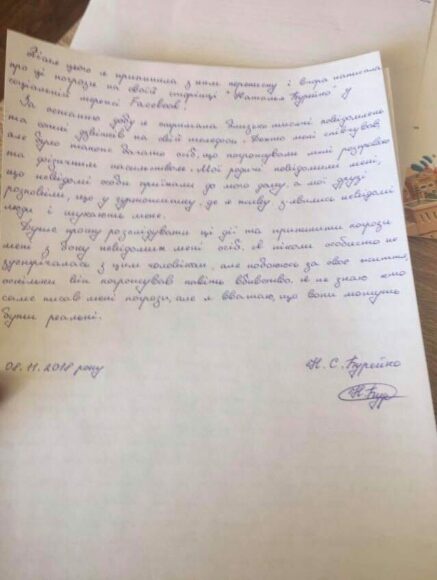 Після цього я припинила з ним переписку і вчора написала
про ці погрози на своїй сторінці "Наталья Бурейко" у
соціальній мережі Facebook.
За останню добу я отримала близько тисячі повідомлень
та сотні дзвінків на свій телефон. Дехто мені співчував,
але було також багато осіб, що погрожували мені розправою
та фізичним насильством. Мої родичі повідомили мені,
що невідомі особи приїхали до мого дому, а мої друзі
розповіли, що у гуртожитку, де я живу з'явились невідомі
люди і шукають мене.
Дуже прошу розслідувати ці дії та припинити погрози
мені з боку невідомих мені осіб. Я ніколи особисто не
зустрічалась з цим чоловіком, але побоююсь за своє життя,
оскільки він погрожував навіть вбивством. Я не знаю хто
саме писав мені погрози, але я вважаю, що вони можуть
бути реальні.
08.11.2018 року
Н. С. Бурейко
Н. Бур